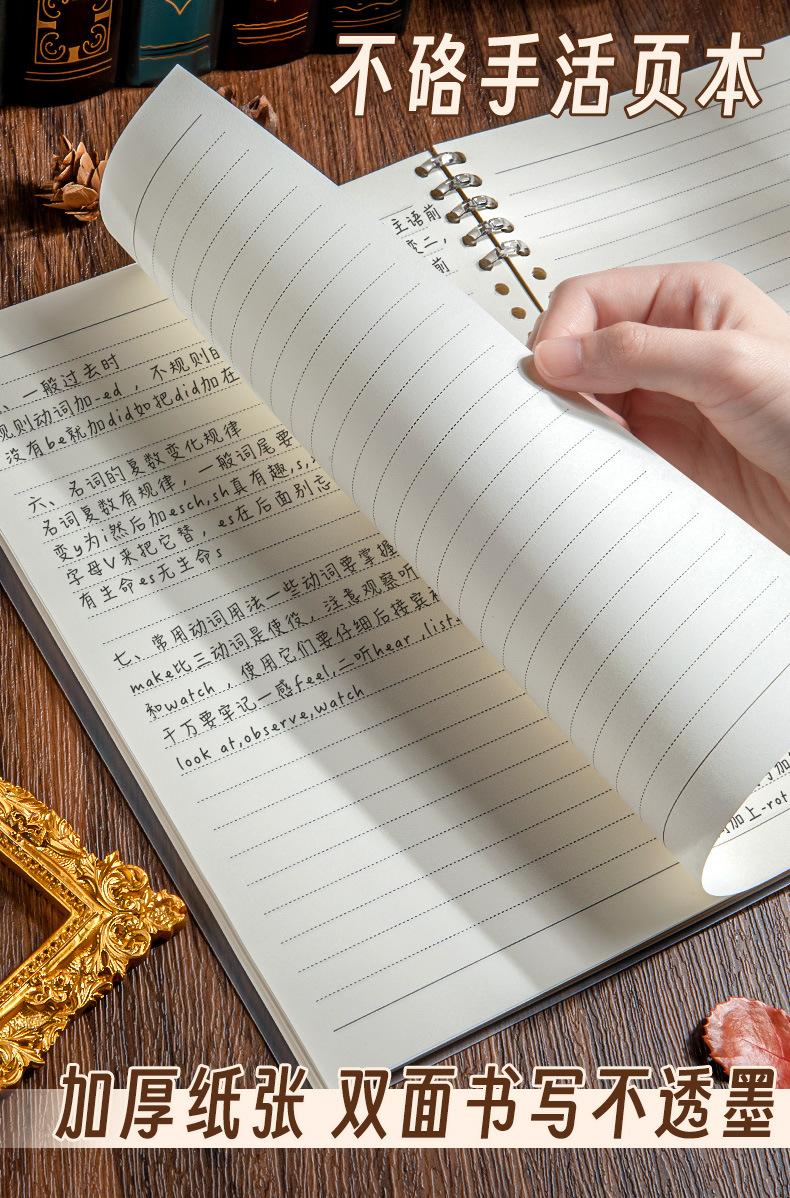 不硌手活页本
主语前
变二,
前
、一般过去时
规则动词加-ed，不规则的
没有be就加did如把did加在
六、名词的复数变化规律
名词复数有规律，一般词尾要
变y为i然后加esch,sh真有趣,s,
字母V来把它替，es在后面别忘
有生命es无生命s
七、常用动词用法一些动词要掌握
make比三动词是使役，注意观察听
和watch，使用它们要仔细后接宾补
千万要牢记一感feel,二听hear,list
look at,observe,watch
加上-rot
加厚纸张 双面书写不透墨